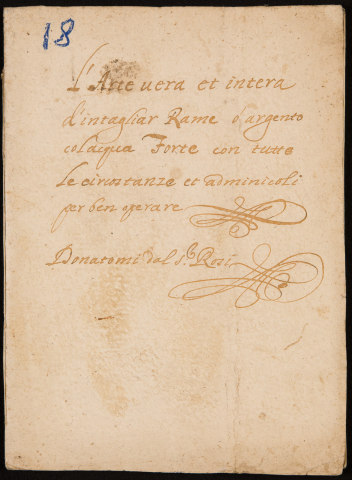 18
L'Arte vera et intera
d'intagliar Rame o d'argento
col acqua Forte con tutte
le circostanze et adminicoli
per ben operare
Donatomi dal S.r Rosi